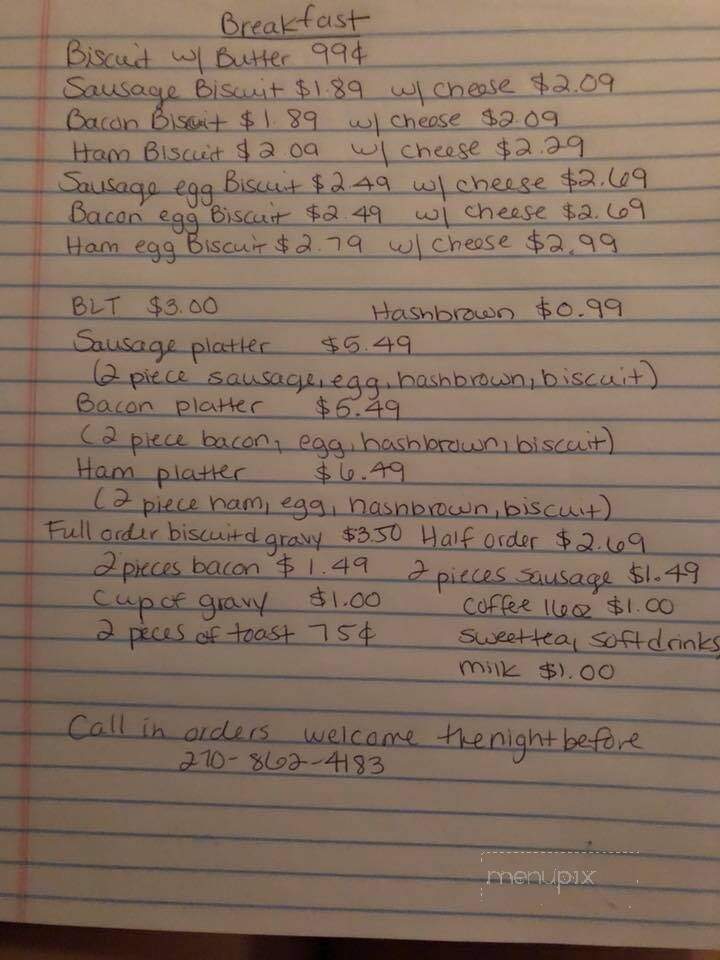 Breakfast
Biscuit w/ Butter 99¢
Sausage Biscuit $1.89 w/ cheese $2.09
Bacon Biscuit $1.89 w/ cheese $2.09
Ham Biscuit $2.09 w/ cheese $2.29
Sausage egg Biscuit $2.49 w/ cheese $2.69
Bacon egg Biscuit $2.49 w/ cheese $2.69
Ham egg Biscuit $2.79 w/ cheese $2.99
BLT $3.00 Hashbrown $0.99
Sausage platter $5.49
(2 piece sausage, egg, hashbrown, biscuit)
Bacon platter $5.49
(2 piece bacon, egg, hashbrown, biscuit)
Ham platter $6.49
(2 piece ham, egg, hashbrown, biscuit)
Full order biscuit d gravy $3.50 Half order $2.69
2 pieces bacon $1.49 2 pieces sausage $1.49
Cup of gravy $1.00 coffee 16oz $1.00
2 peces of toast 75¢ sweettea, softdrinks
milk $1.00
Call in orders welcome the night before
270-862-4183
menupix